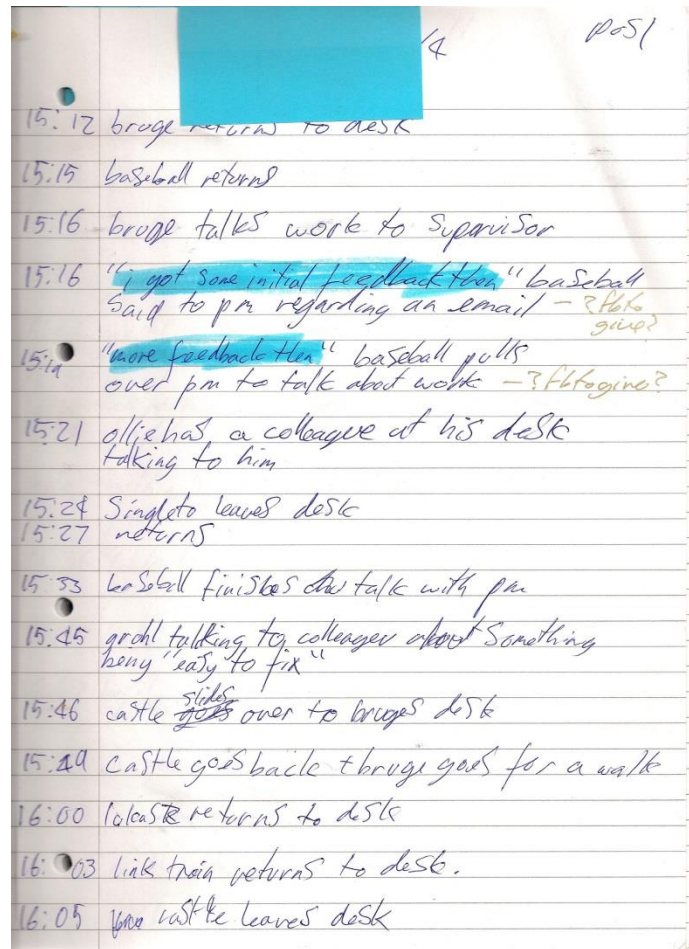 /4
pos1
15:12 bruge returns to desk
15:15 baseball returns
15:16 bruge talks work to supervisor
15:16 "i got some initial feedback then" baseball
said to pm regarding an email - ? fb to
give?
15:19 "more feedback then" baseball pulls
over pm to talk about work - ? fb to give?
15:21 ollie has a colleague at his desk
talking to him
15:24 Singleto leaves desk
15:27 returns
15:33 baseball finishes talk with pm
15:45 grohl talking to colleague about something
being "easy to fix"
slides
15:46 castle goes over to bruges desk
15:49 castle goes back + bruge goes for a walk
16:00 returns to desk
16:03 link train returns to desk.
16:05 castle leaves desk